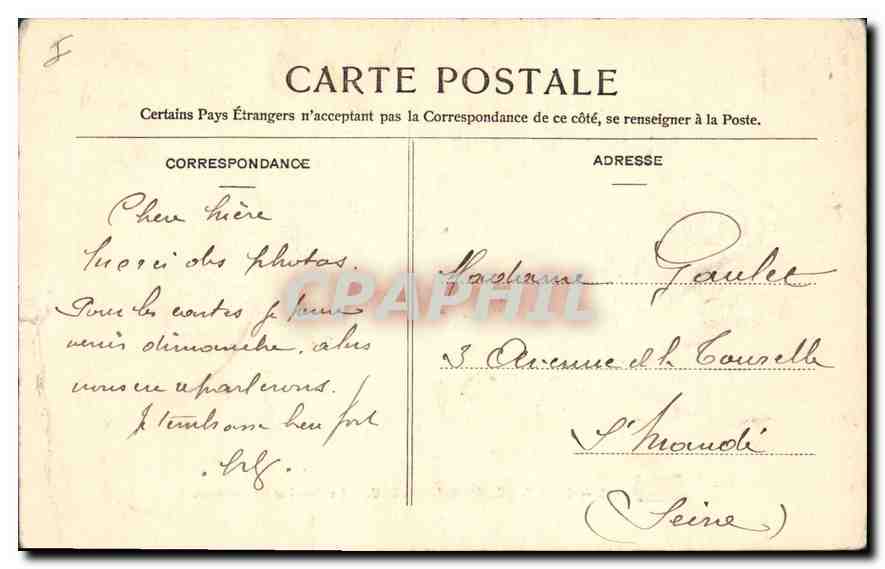 CARTE POSTALE
Certains Pays Étrangers n'acceptant pas la Correspondance de ce côté, se renseigner à la Poste.
CORRESPONDANCE
Chère Mère
Merci des photos.
Pour les cartes je pense
venir dimanche, alors
nous en reparlerons.
Je t'embrasse bien fort
ADRESSE
Madame Goulet
3 Avenue de la Tourelle
St Mandé
(Seine)
CPAPHIL